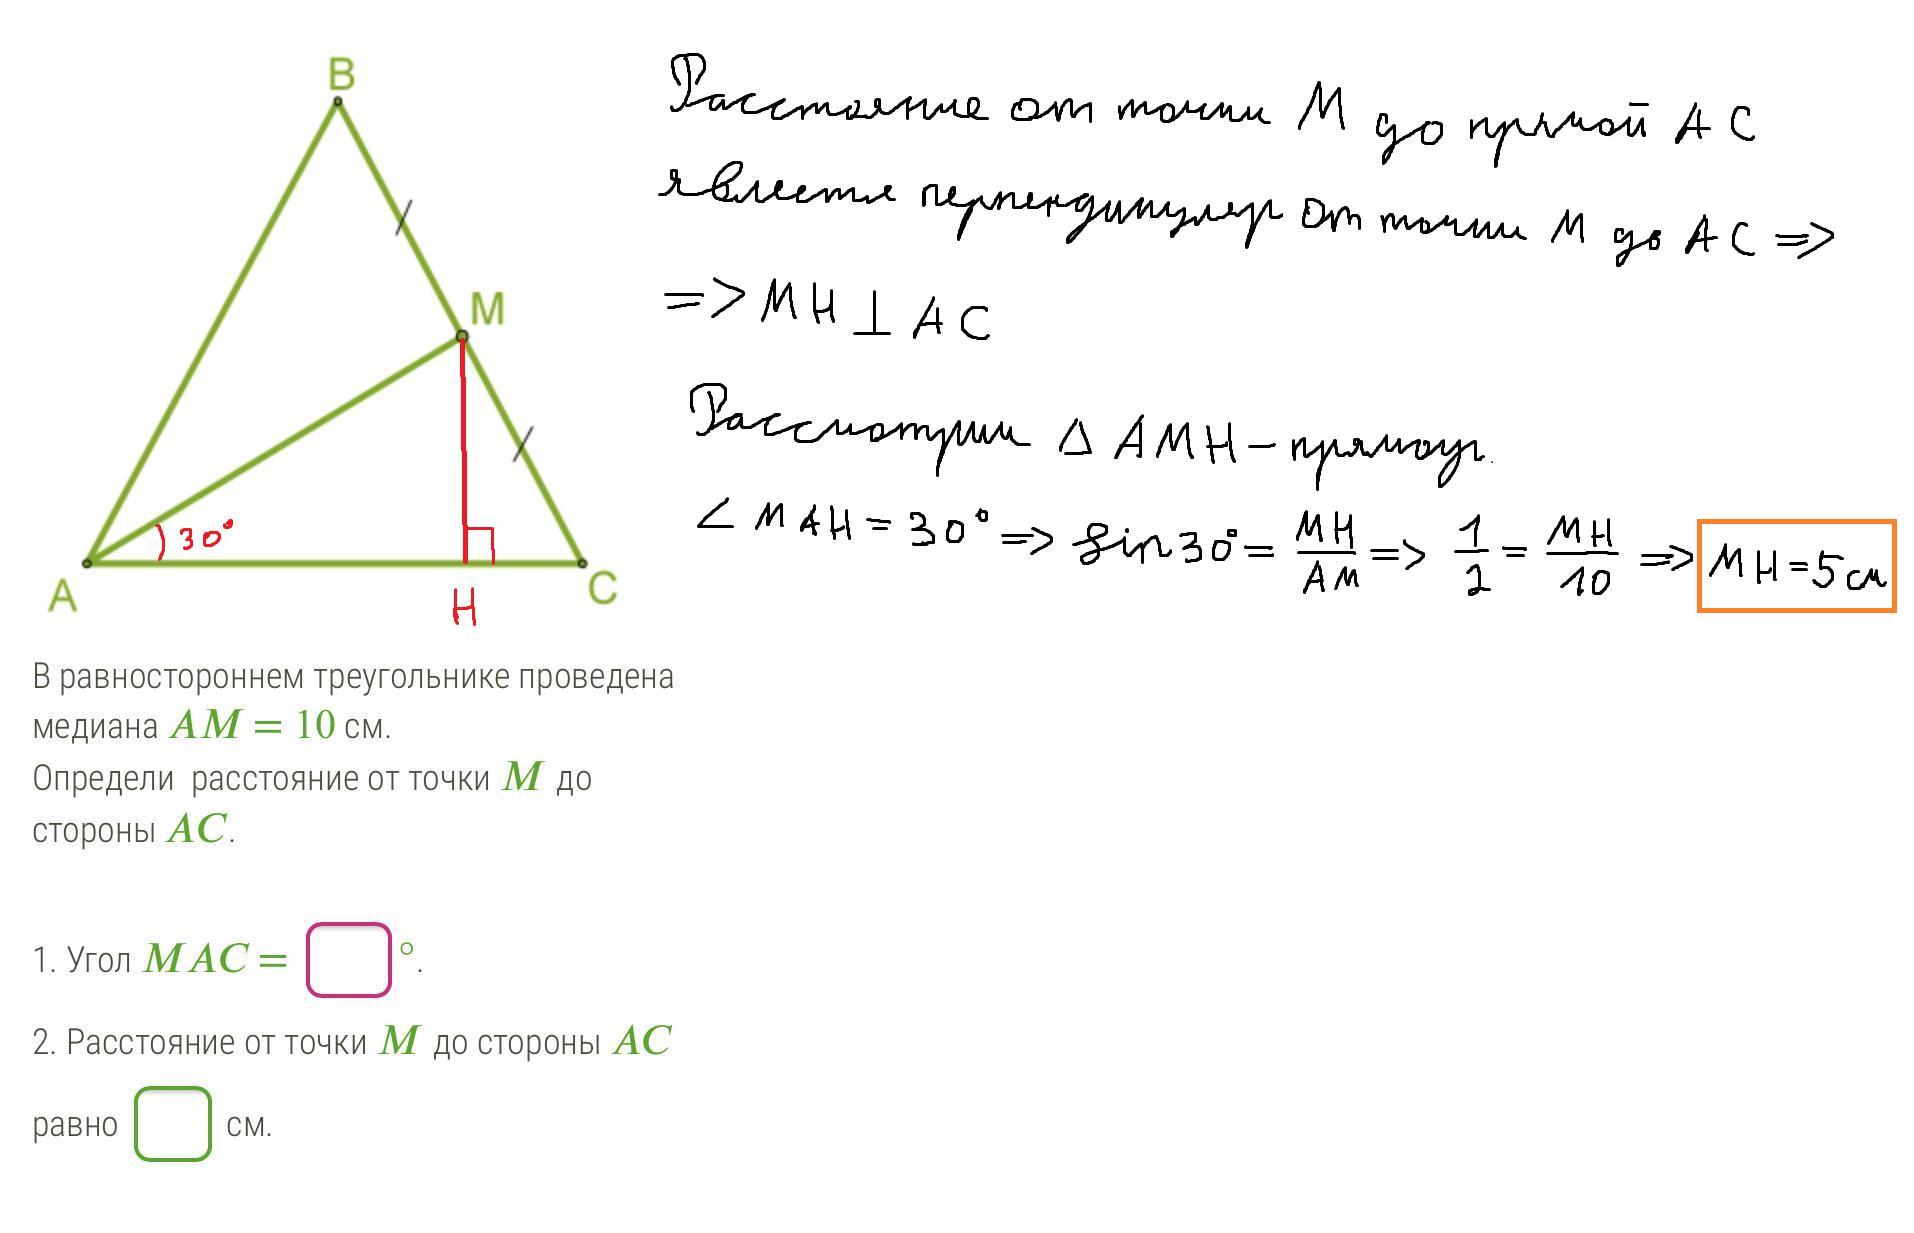 B
M
A
30°
H
C
Расстояние от точки M до прямой AC
является перпендикуляр от точки M до AC =>
=> MH ⊥ AC
Рассмотрим Δ AMH – прямоуг.
∠ MAH = 30° => sin30° = MH/AM => 1/2 = MH/10 => MH = 5 см
В равностороннем треугольнике проведена
медиана AM = 10 см.
Определи расстояние от точки M до
стороны AC.
1. Угол MAC = °.
2. Расстояние от точки M до стороны AC
равно см.